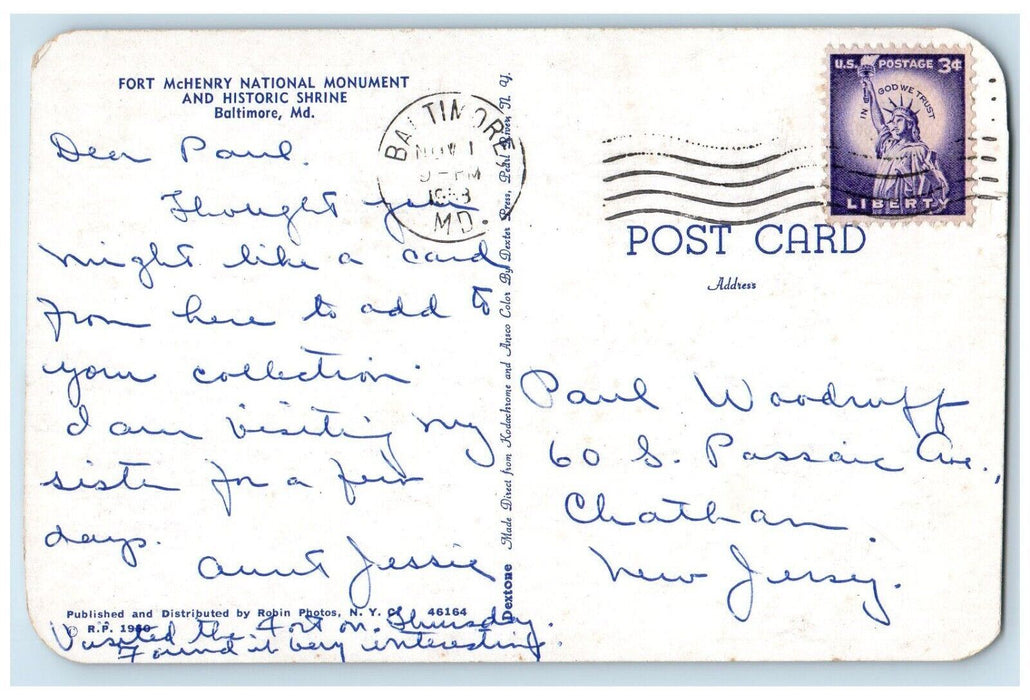 FORT McHENRY NATIONAL MONUMENT
AND HISTORIC SHRINE
Baltimore, Md.
Dear Paul.
Thought you
might like a card
from here to add to
your collection.
I am visiting my
sister for a few
days.
Aunt Jessie
Published and Distributed by Robin Photos, N. Y. C. 46164
© R.P. 1960
Visited the Fort on Thursday.
Found it very interesting.
Dextone Made Direct from Kodachrome and Ansco Color By Dexter Press, Pearl River, N. Y.
BALTIMORE
NOV 1
PM
MD.
U.S. POSTAGE 3¢
IN GOD WE TRUST
LIBERTY
POST CARD
Address
Paul Woodruff
60 S. Passaic Ave.,
Chatham
New Jersey.